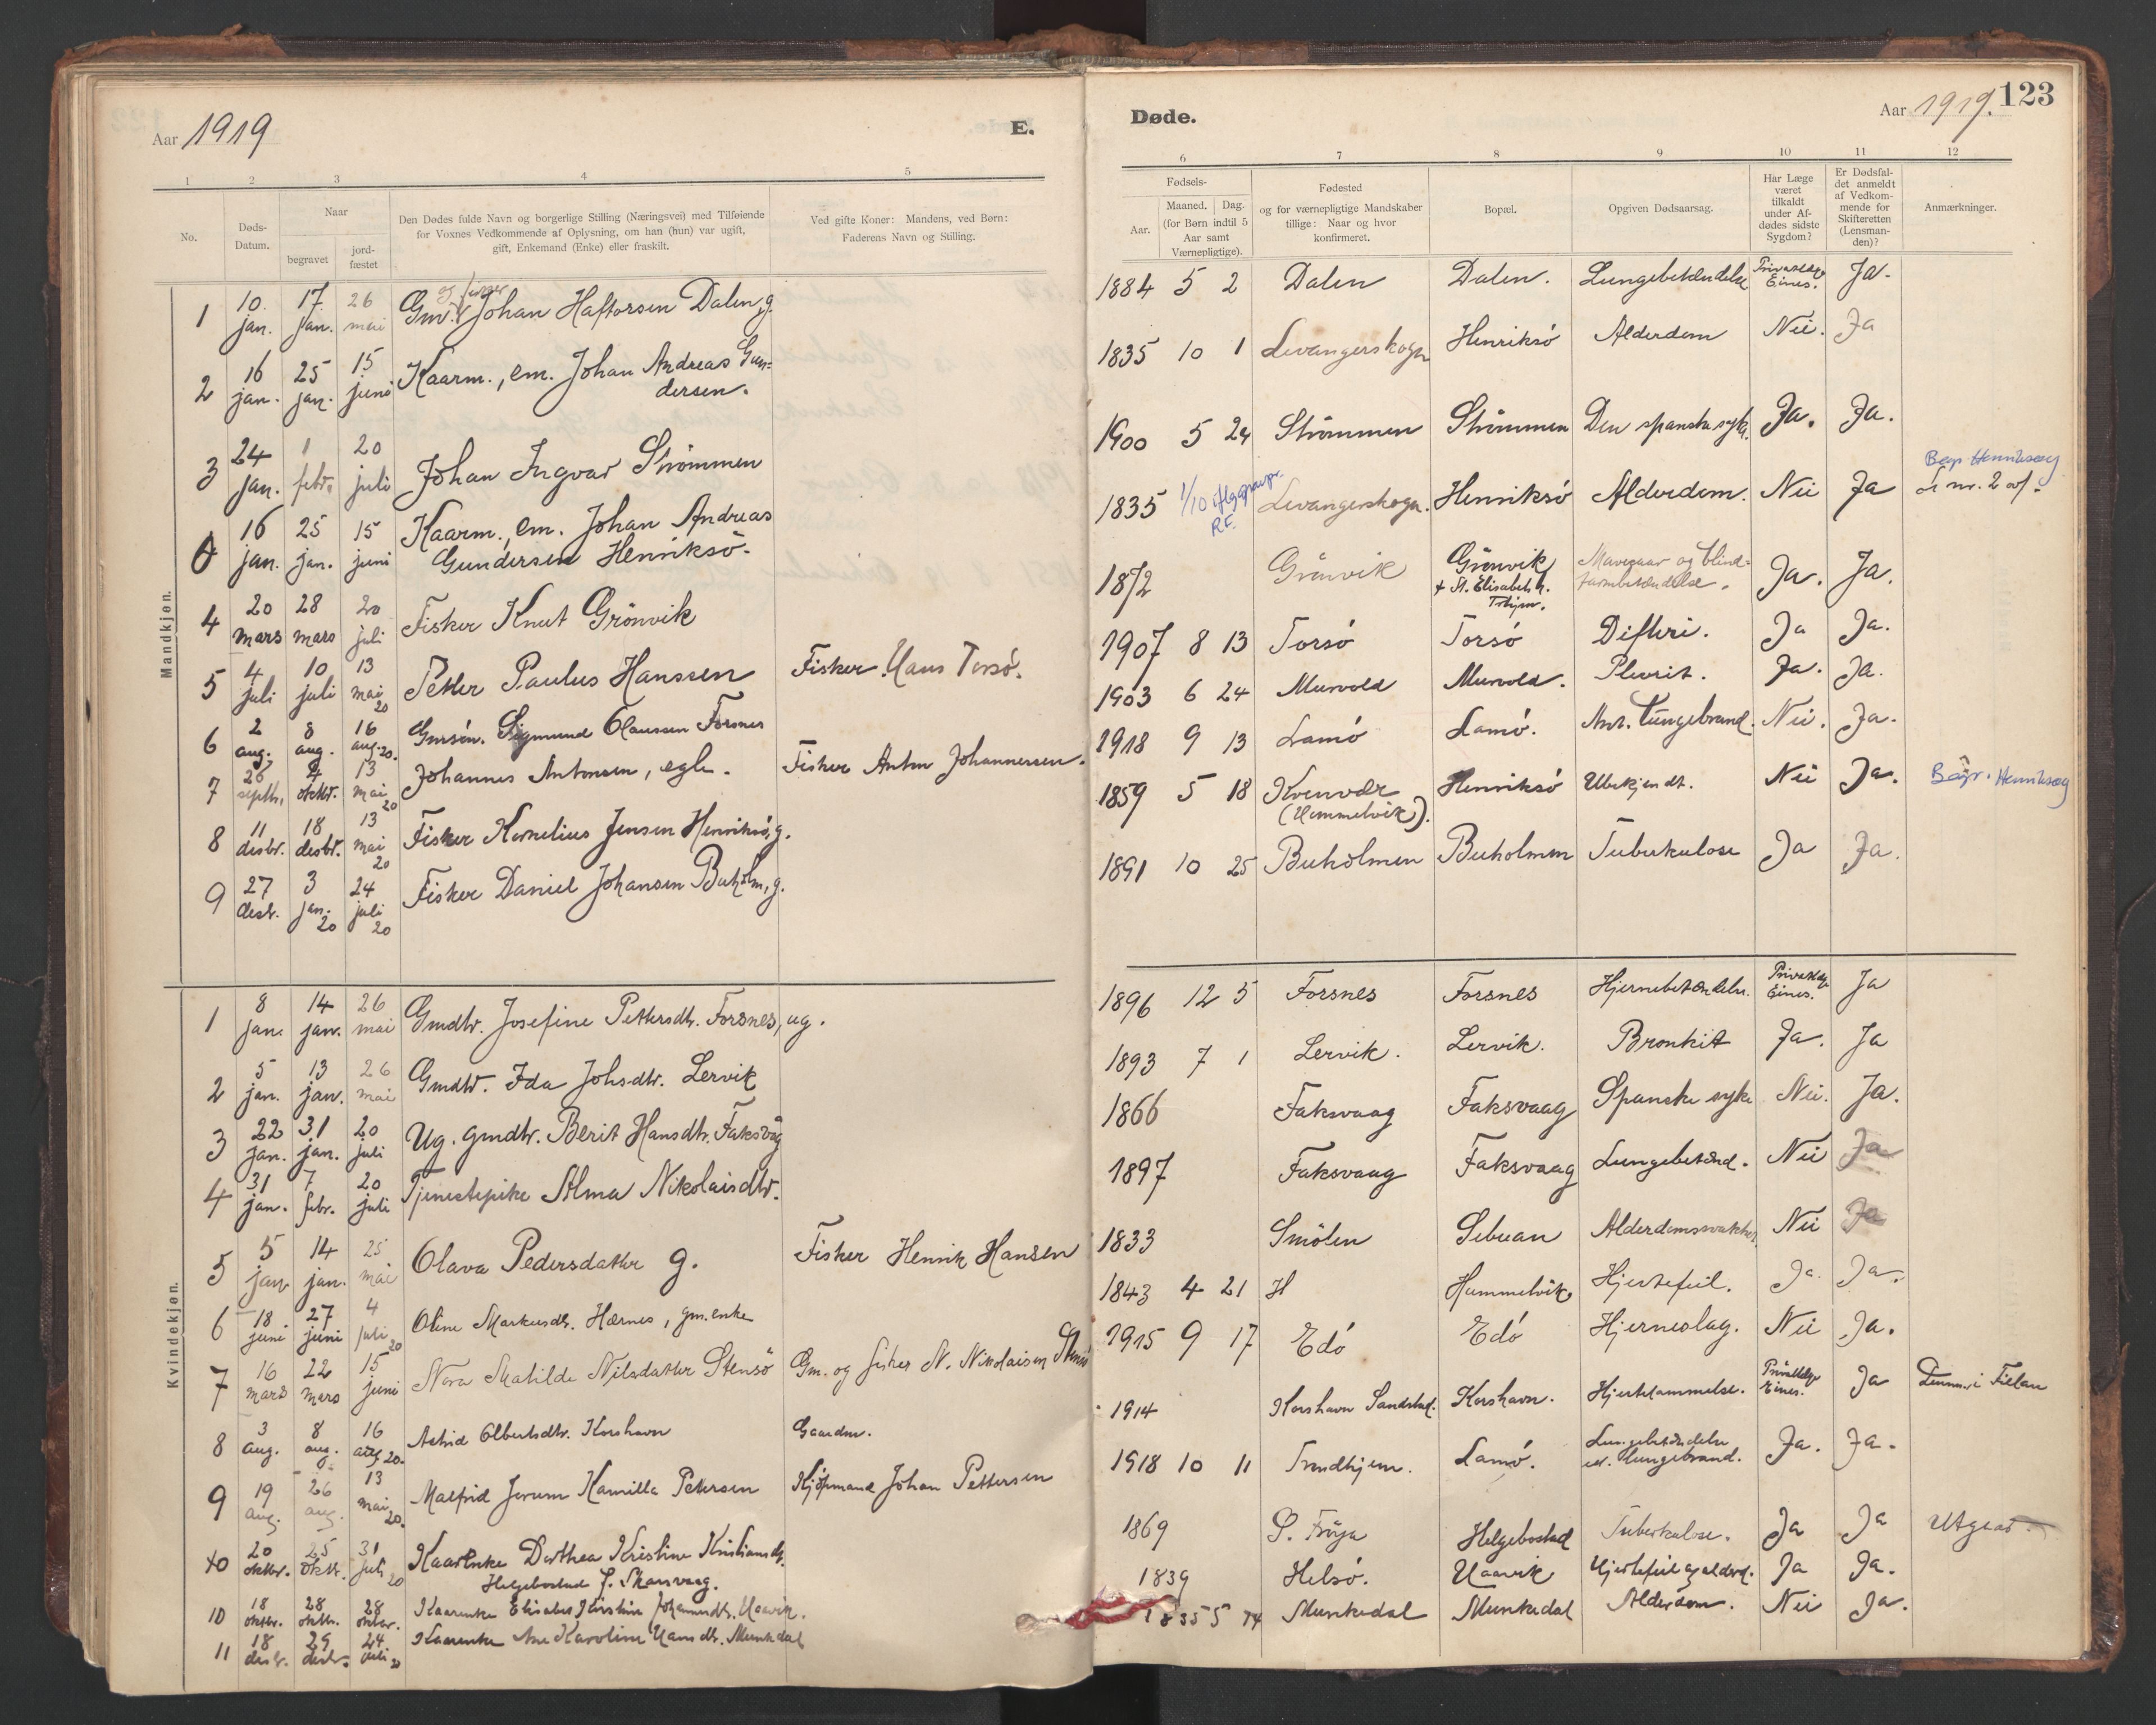 Aar 1919
E.
1 2 3 4 5
No.
Døds-
Datum.
Naar
begravet
jord-
fæstet
Den Dødes fulde Navn og borgerlige Stilling (Næringsvei) med Tilføiende
for Voxnes Vedkommende af Oplysning, om han (hun) var ugift,
gift, Enkemand (Enke) eller fraskilt.
Ved gifte Koner: Mandens, ved Børn:
Faderens Navn og Stilling.
Mandkjøn.
1 10. jan. 17. jan. 26 mai Gm. Johan Haftorsen Dalen, g.
2 16 jan. 25 jan. 15 juni Kaarm., em. Johan Andreas Gun-
dersen.
3 24 jan. 1 febr. 20 juli Johan Ingvar Strömmen
16 jan. 25 jan. 15 juni Kaarm., em. Johan Andreas
Gundersen Henriksö.
4 20 mars 28 mars 20 juli Fisker Knut Grönvik
5 4 juli 10 juli 13 mai 20 Petter Paulus Hanssen Fisker Hans Torsö.
6 2 aug. 8 aug. 16 aug. 20. Gmsön. Sigmund Olaussen Forsnes
7 26 septbr. 4 oktbr. 13 mai 20 Johannes Antonsen, egte. Fisker Anton Johannessen.
8 11 desbr. 18 desbr. 13 mai 20 Fisker Kornelius Jensen Henriksö, g.
9 27 desbr. 3 jan. 20 24 juli 20 Fisker Daniel Johansen Buholm, g.
Kvindekjøn.
1 8 jan. 14 jan. 26 mai Gmdtr. Josefine Pettersdtr. Forsnes, ug.
2 5 jan. 13 jan. 26 mai Gmdtr. Ida Johsdtr. Lervik
3 22 jan. 31 jan. 20 juli Ug. gmdtr. Berit Hansdtr. Faksvåg
4 31 jan. 7 febr. 20 juli Tjenestepike Alma Nikolaisdtr.
5 5 jan. 14 jan. 25 mai Olava Pedersdatter g. Fisker Henrik Hansen
6 18 juni 27 juni 4 juli 20 Oline Markusdtr. Hernes, gm.enke
7 16 mars 22 mars 15 juni Nora Matilde Nilsdatter Stensö Gm. og fisker N. Nikolaisen Stensö
8 3 aug. 8 aug. 16 aug. 20. Astrid Olbertsdtr. Korshavn Gaardm.
9 19 aug. 26 aug. 13 mai 20. Malfrid Jorum Kamilla Petersen Kjöpmand Johan Pettersen
10 20 oktbr. 25 oktbr. 31 juli 20 Kaarenke Dorthea Kristine Kristiansdtr.
Helgebostad f. Skarsvaag.
10 18 oktbr. 28 oktbr. 28 oktbr. Kaarenke Elisabet Kirstine Johannesdtr. Uaavik.
11 18 desbr. 29 desbr. 24 juli 20 Kaarenke Ane Karoline Hansdtr. Munkedal
Døde.
Aar 1919. 123
6 7 8 9 10 11 12
Fødsels-
Aar.
Maaned. Dag.
(for Børn indtil 5
Aar samt
Værnepligtige).
Fødested
og for værnepligtige Mandskaber
tillige: Naar og hvor
konfirmeret.
Bopæl.
Opgiven Dødsaarsag.
Har Læge
været
tilkaldt
under Af-
dødes sidste
Sygdom?
Er Dødsfal-
det anmeldt
af Vedkom-
mende for
Skifteretten
(Lensman-
den)?
Anmærkninger.
1884 5 2 Dalen Dalen. Lungebetændelse Privatlæge Eines. Ja.
1835 10 1 Levangerskogn Henriksö Alderdom Nei. Ja
1900 5 24 Strömmen Strömmen Den spanske syke. Ja. Ja.
1835 1/10 R.F. Levangerskogn. Henriksö Alderdom. Nei Ja Begr. Henriksøy
nr. 2 of.
1872 Grönvik Grönvik Mavesaar og blind- Ja. Ja.
+ St. Elisabeth h. tarmbetændelse.
Trhjm.
1907 8 13 Torsö Torsö Difteri. Ja Ja.
1903 6 24 Murvold Murvold. Plevrit. Ja. Ja.
1918 9 13 Lamö Lamö. Ant. lungebrand. Nei. Ja.
1859 5 18 Kvenvær Henriksö Ubekjendt. Nei Ja. Begr. Henriksøy
(Hemmelvik).
1891 10 25 Buholmen Buholmen Tuberkulose Ja Ja.
1896 12 5 Forsnes Forsnes Hjernebetændelse. Privatlæge Eines. Ja
1893 7 1 Lervik. Lervik. Bronkit Ja. Ja
1866 Faksvaag Faksvaag Spanske syke Nei. Ja.
1897 Faksvaag Faksvaag Lungebetænd. Nei Ja
1833 Smölen Sebuan Alderdomssvakhet Nei Ja
1843 4 21 H Hammelvik Hjertefeil. Ja. Ja.
1915 9 17 Edö Edö Hjerneslag. Nei Ja.
1914 Korshavn Sandstad. Korshavn. Hjertelammelse. Privatlæge Eines. Ja Lensm. i Fillan
1918 10 11 Trondhjem. Lamö. Lungebetændelse Ja. Ja.
el. lungebrand.
1869 S. Fröya Helgebostad Tuberkulose. Ja Ja Utgaar.
1839 Helsö. Uaavik Hjertefeil og alderd. Ja Ja.
1835 5 14 Munkedal Munkedal Alderdom. Nei Ja.